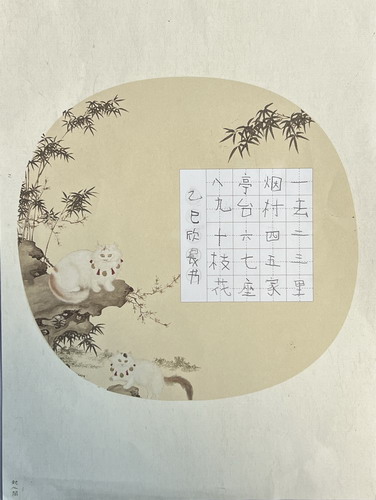 一去二三里
烟村四五家
亭台六七座
八九十枝花
乙巳欣曼书